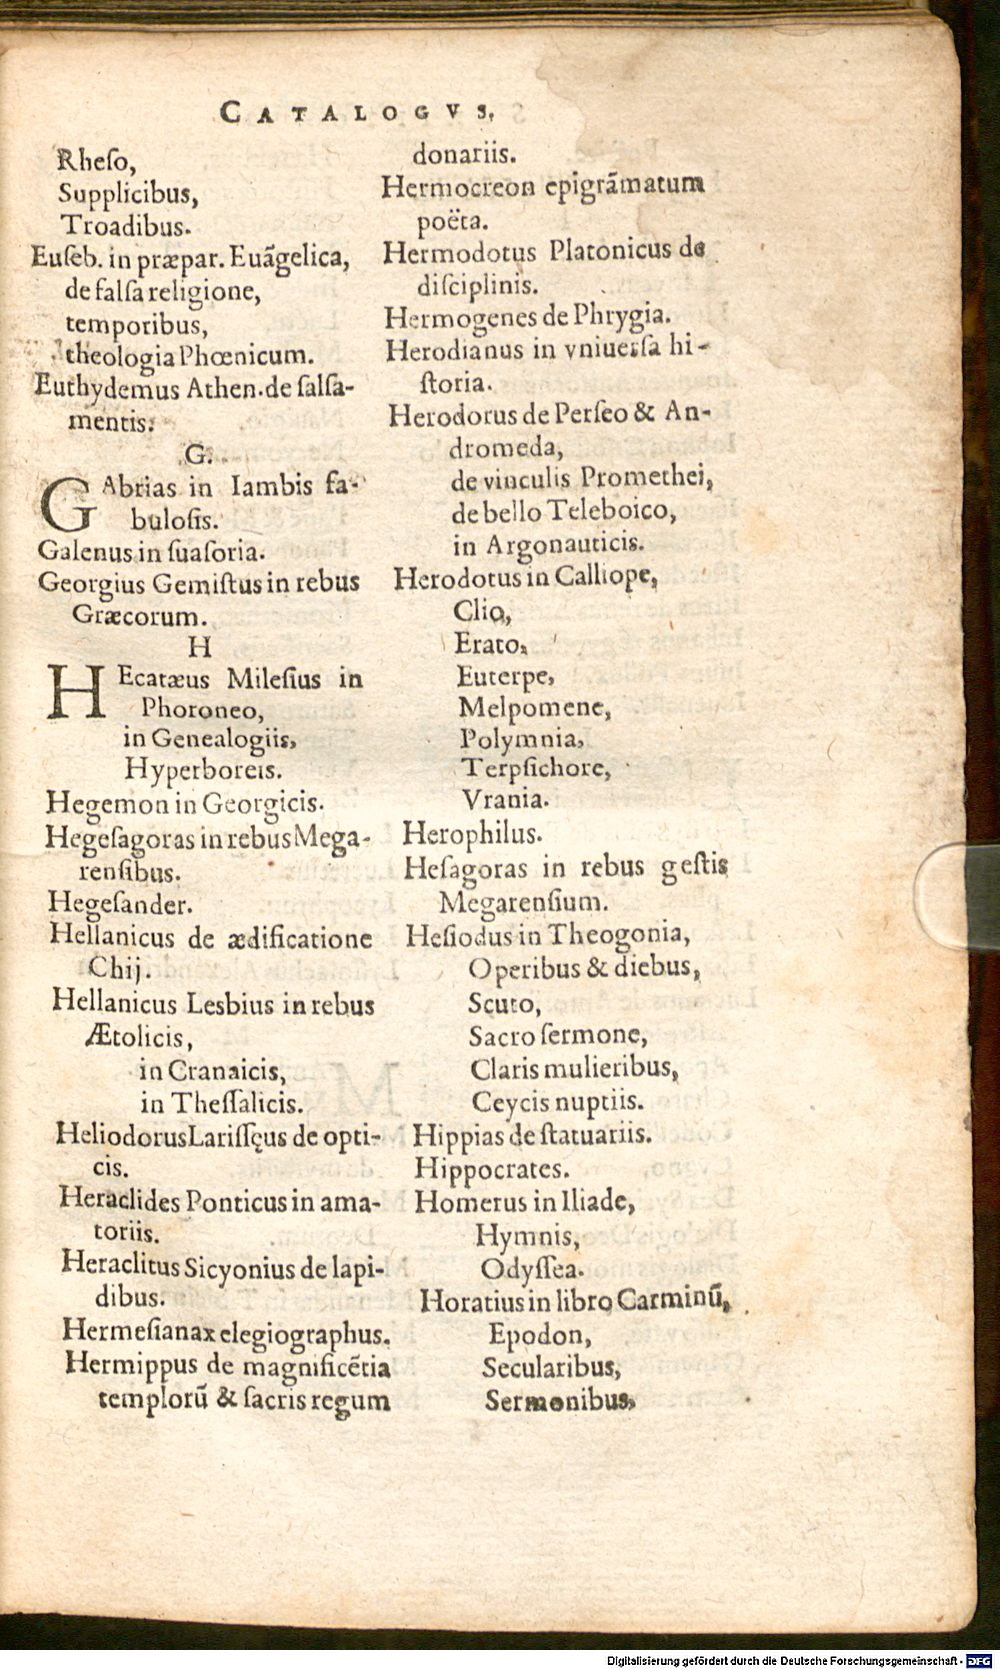 CATALOGVS.
Rheſo,
Supplicibus,
Troadibus.
Euſeb. in præpar. Euãgelica,
de falſa religione,
temporibus,
theologia Phœnicum.
Euthydemus Athen. de ſalſa-
mentis.
G.
GAbrias in Iambis fa-
buloſis.
Galenus in ſuaſoria.
Georgius Gemiſtus in rebus
Græcorum.
H
HEcatæus Mileſius in
Phoroneo,
in Genealogiis,
Hyperboreis.
Hegemon in Georgicis.
Hegeſagoras in rebus Mega-
renſibus.
Hegeſander.
Hellanicus de ædificatione
Chij.
Hellanicus Lesbius in rebus
Ætolicis,
in Cranaicis,
in Theſſalicis.
Heliodorus Lariſſęus de opti-
cis.
Heraclides Ponticus in ama-
toriis.
Heraclitus Sicyonius de lapi-
dibus.
Hermeſianax elegiographus.
Hermippus de magnificẽtia
templorũ & ſacris regum
donariis.
Hermocreon epigrãmatum
poëta.
Hermodotus Platonicus de
diſciplinis.
Hermogenes de Phrygia.
Herodianus in vniuerſa hi-
ſtoria.
Herodorus de Perſeo & An-
dromeda,
de vinculis Promethei,
de bello Teleboico,
in Argonauticis.
Herodotus in Calliope,
Clio,
Erato,
Euterpe,
Melpomene,
Polymnia,
Terpſichore,
Vrania.
Herophilus.
Heſagoras in rebus geſtis
Megarenſium.
Heſiodus in Theogonia,
Operibus & diebus,
Scuto,
Sacro ſermone,
Claris mulieribus,
Ceycis nuptiis.
Hippias de ſtatuariis.
Hippocrates.
Homerus in Iliade,
Hymnis,
Odyſſea.
Horatius in libro Carminũ,
Epodon,
Secularibus,
Sermonibus,
Digitalisierung gefördert durch die Deutsche Forschungsgemeinschaft - DFG